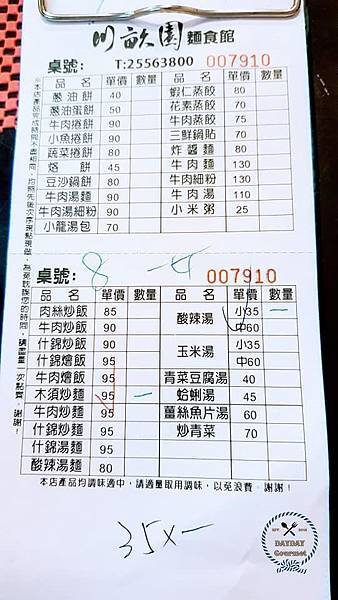 川畝園 麵食館
桌號： T:25563800 007910
品名 單價 數量 品名 單價 數量
蔥油餅 40 蝦仁蒸餃 80
蔥油蛋餅 50 花素蒸餃 70
牛肉捲餅 90 牛肉蒸餃 75
小魚捲餅 90 三鮮鍋貼 70
蔬菜捲餅 80 炸醬麵 80
烙餅 45 牛肉麵 130
豆沙鍋餅 80 牛肉細粉 130
牛肉湯麵 90 牛肉湯 110
牛肉湯細粉 90 小米粥 25
小籠湯包 70
桌號： 8 007910
品名 單價 數量 品名 單價 數量
肉絲炒飯 85 酸辣湯 小35 一
牛肉炒飯 90 中60
什錦炒飯 90 玉米湯 小35
什錦燴飯 95 中60
牛肉燴飯 95 青菜豆腐湯 40
木須炒麵 95 一 蛤蜊湯 45
牛肉炒麵 95 薑絲魚片湯 60
什錦炒麵 95 炒青菜 70
什錦湯麵 95
酸辣湯麵 80
本店產品均調味適中，請適量取用調味，以免浪費。謝謝！
35x一
DAYDAY
Gourmet